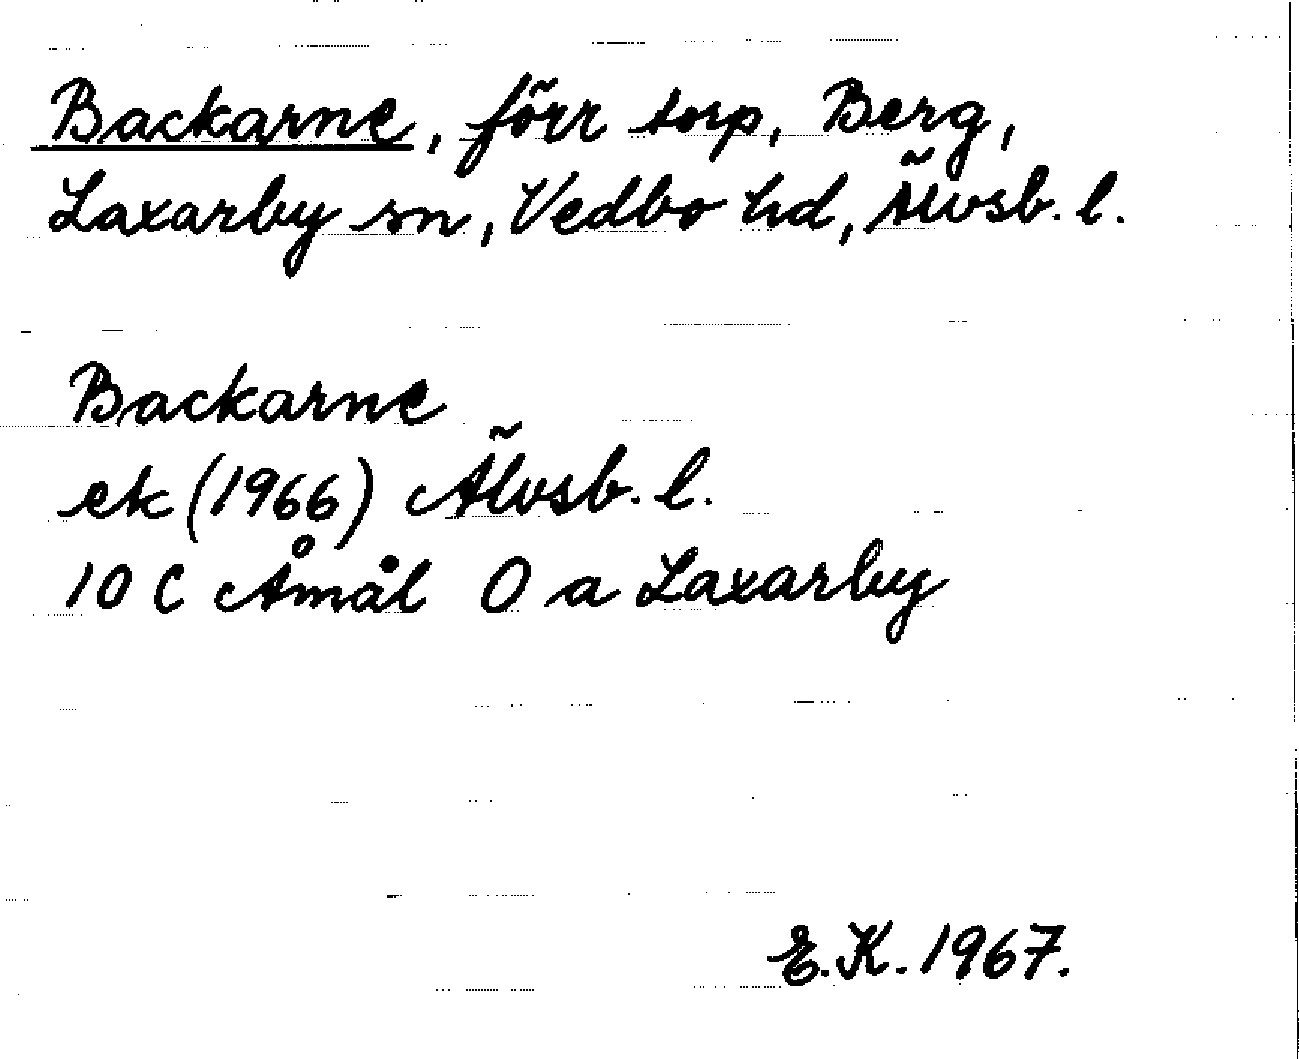 Backarne, förr torp, Berg,
Laxarby sn, Vedbo hd, Älvsb. l.
Backarne
ek (1966) Älvsb. l.
10 C Åmål O a Laxarby
E.K. 1967.